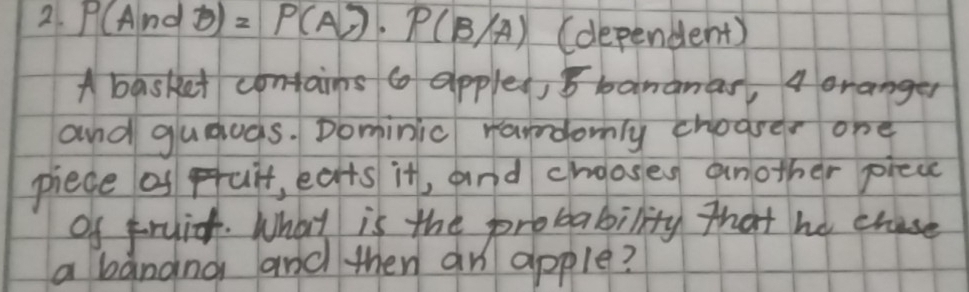 2. P(And B) = P(A). P(B/A) (dependent)
A basket contains 6 apples, 5 bananas, 4 oranges
and guavas. Dominic ramdomly chooses one
piece of Fruit, eats it, and chooses another piece
Of fruit. What is the probability that he chose
a banana and then an apple?